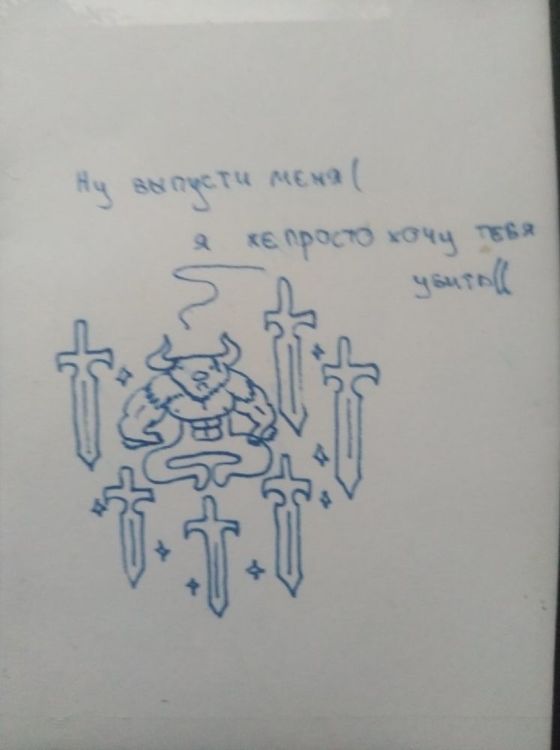 Ну выпусти меня(
я же просто хочу тебя
убить((